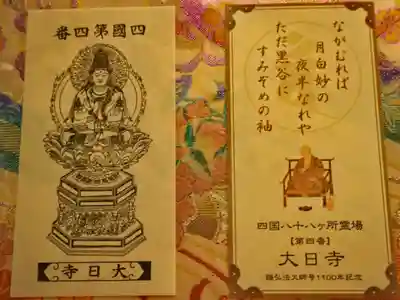 番四第國四
寺日大
ながむれば
月白妙の
夜半なれや
ただ黒谷に
すみぞめの袖
四国八十八ヶ所霊場
【第四番】
大日寺
諡弘法大師号1100年記念